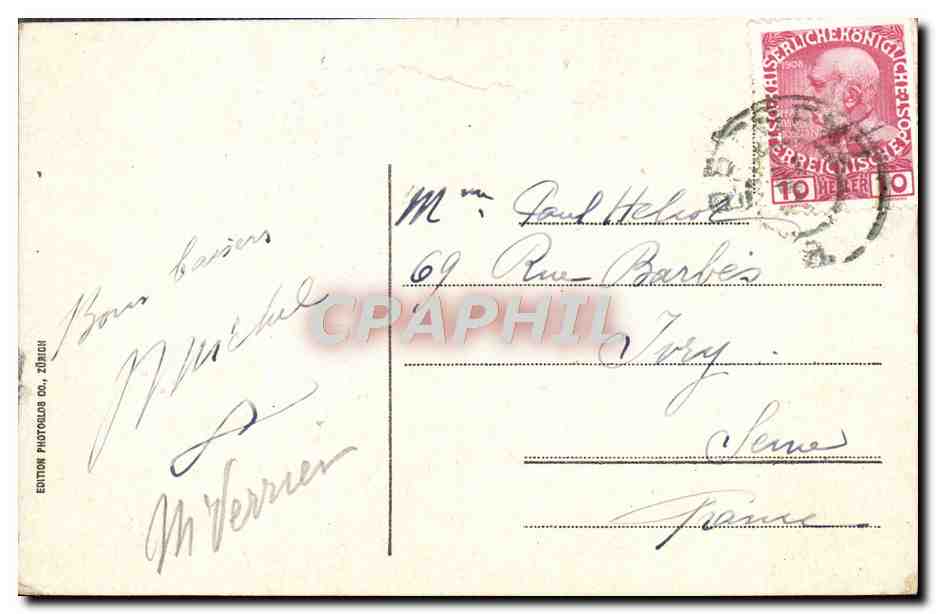 EDITION PHOTOGLOB CO., ZÜRICH
Bons baisers
Michel
M Verrier
KAISERLICHE KÖNIGLICHE
ÖSTERREICHISCHE POST
1908
10 HELLER 10
Mme Paul
69 Rue Barbès
Ivry
Seine
France
CPAPHIL